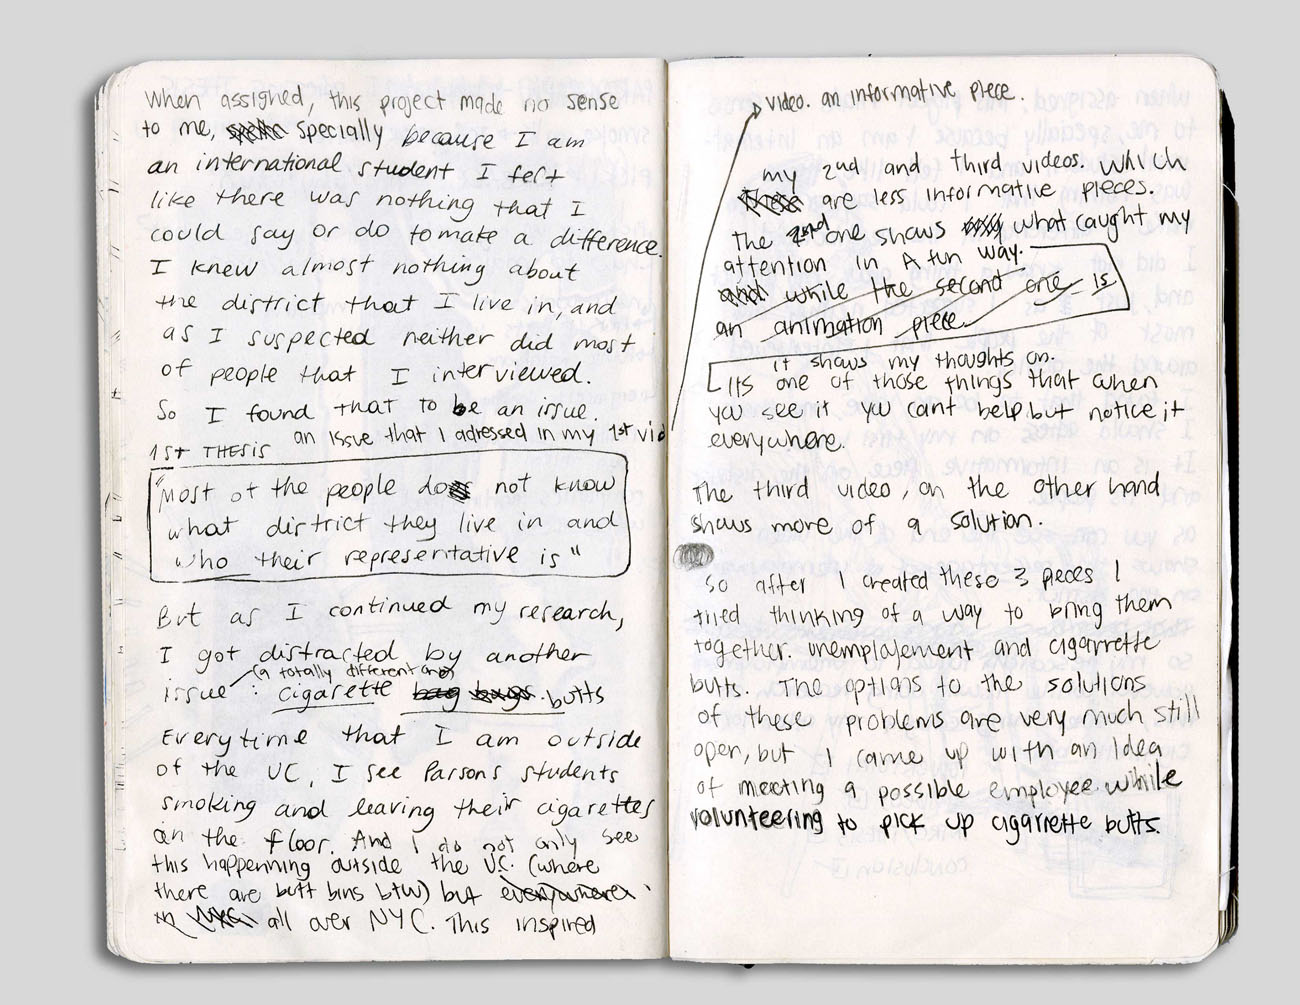 When assigned, this project made no sense
to me, specially because I am
an international student I felt
like there was nothing that I
could say or do to make a difference.
I knew almost nothing about
the district that I live in, and
as I suspected neither did most
of people that I interviewed.
So I found that to be an issue.
an issue that I adressed in my 1st vid
1ST THESIS
"Most of the people do not know
what district they live in and
who their representative is"
But as I continued my research,
I got distracted by another
(a totally different one)
issue : cigarette bag bugs. butts
Everytime that I am outside
of the UC, I see Parsons students
smoking and leaving their cigarettes
on the floor. And I do not only see
this happenning outside the UC. (where
there are butt bins btw) but everywhere
in NYC all over NYC. This inspired
video. an informative piece.
my 2nd and third videos. which
These are less informative pieces.
The 2nd one shows what caught my
attention in A fun way.
and while the second one is
an animation piece.
it shows my thoughts on.
Its one of those things that when
you see it you cant help but notice it
everywhere.
The third video, on the other hand
shows more of a solution.
So after I created these 3 pieces I
tried thinking of a way to bring them
together. unemployement and cigarrette
butts. The options to the solutions
of these problems are very much still
open, but I came up with an idea
of meeting a possible employee while
volunteering to pick up cigarrette butts.